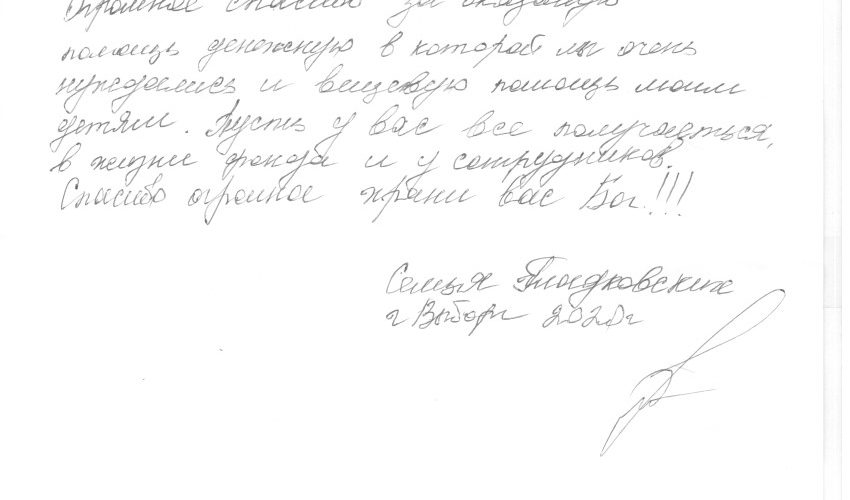 Огромное спасибо за оказаную
помощь денежную в которой мы очень
нуждались и вещевую помощь моим
детям. Пусть у вас все получаеться,
в жизни фонда и у сотрудников.
Спасибо огромное храни вас Бог!!!
Семья
г Выборг 2020г